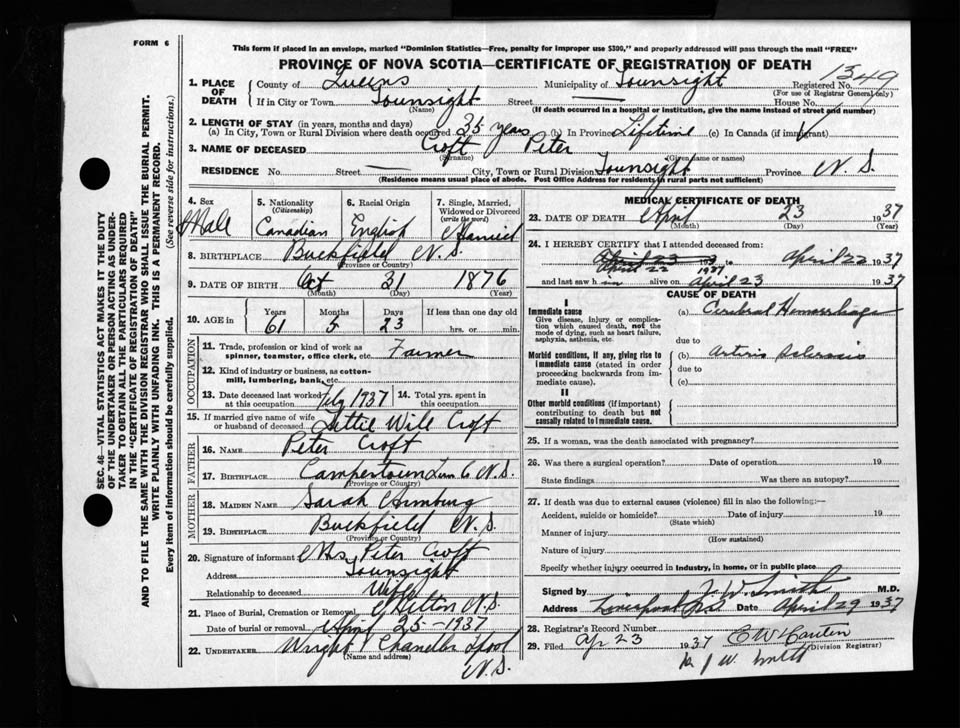 FORM 6
This form if placed in an envelope, marked "Dominion Statistics—Free, penalty for improper use $300," and properly addressed will pass through the mail "FREE"
PROVINCE OF NOVA SCOTIA—CERTIFICATE OF REGISTRATION OF DEATH
1349
1. PLACE OF DEATH County of Queens Municipality of Registered No.
(For use of Registrar General only)
If in City or Town Street — House No.
(Name) (If death occurred in a hospital or institution, give the name instead of street and number)
2. LENGTH OF STAY (in years, months and days)
(a) In City, Town or Rural Division where death occurred 35 years (b) In Province Lifetime (c) In Canada (if immigrant)
3. NAME OF DECEASED Croft Peter
(Surname) (Given name or names)
RESIDENCE No. — Street City, Town or Rural Division Province N.S.
(Residence means usual place of abode. Post Office Address for residents in rural parts not sufficient)
4. Sex Male
5. Nationality (Citizenship) Canadian
6. Racial Origin English
7. Single, Married, Widowed or Divorced (write the word) Married
8. BIRTHPLACE Buckfield N.S.
(Province or Country)
9. DATE OF BIRTH Oct 21 1876
(Month) (Day) (Year)
10. AGE in Years 61 Months 5 Days 23 If less than one day old hrs. or min.
OCCUPATION
11. Trade, profession or kind of work as spinner, teamster, office clerk, etc. Farmer
12. Kind of industry or business, as cotton-mill, lumbering, bank, etc.
13. Date deceased last worked at this occupation 1937 14. Total yrs. spent in this occupation
15. If married give name of wife or husband of deceased Lettie Wile Croft
FATHER
16. NAME Peter Croft
17. BIRTHPLACE Campertown Lun Co N.S.
(Province or Country)
MOTHER
18. MAIDEN NAME Sarah
19. BIRTHPLACE Buckfield N.S.
(Province or Country)
20. Signature of informant Mrs Peter Croft
Address
Relationship to deceased Wife
21. Place of Burial, Cremation or Removal Milton N.S.
Date of burial or removal April 25-1937
22. UNDERTAKER Wright Chandler L'pool
(Name and address) N.S.
MEDICAL CERTIFICATE OF DEATH
23. DATE OF DEATH April 23 1937
(Month) (Day) (Year)
24. I HEREBY CERTIFY that I attended deceased from:
April 23 193 to April 22 1937
April 22 1937
and last saw h im alive on April 23 1937
CAUSE OF DEATH
I
Immediate cause
Give disease, injury or complication which caused death, not the mode of dying, such as heart failure, asphyxia, asthenia, etc.
(a) Cerebral Hemorrhage
due to
Morbid conditions, if any, giving rise to immediate cause (stated in order proceeding backwards from immediate cause).
(b) Arterio Sclerosis
due to
(c)
II
Other morbid conditions (if important) contributing to death but not causally related to immediate cause.
25. If a woman, was the death associated with pregnancy?
26. Was there a surgical operation? Date of operation 19
State findings Was there an autopsy?
27. If death was due to external causes (violence) fill in also the following:—
Accident, suicide or homicide? Date of injury 19
(State which)
Manner of injury
(How sustained)
Nature of injury
Specify whether injury occurred in industry, in home, or in public place
Signed by J. W. Smith M.D.
Address Liverpool N.S. Date April 29 1937
28. Registrar's Record Number
29. Filed Ap 23 1937
(Division Registrar)
J W Smith
SEC. 46—VITAL STATISTICS ACT MAKES IT THE DUTY OF THE UNDERTAKER OR PERSON ACTING AS UNDERTAKER TO OBTAIN ALL THE PARTICULARS REQUIRED IN THE "CERTIFICATE OF REGISTRATION OF DEATH" AND TO FILE THE SAME WITH THE DIVISION REGISTRAR WHO SHALL ISSUE THE BURIAL PERMIT.
WRITE PLAINLY WITH UNFADING INK. THIS IS A PERMANENT RECORD.
Every item of information should be carefully supplied. (See reverse side for instructions.)